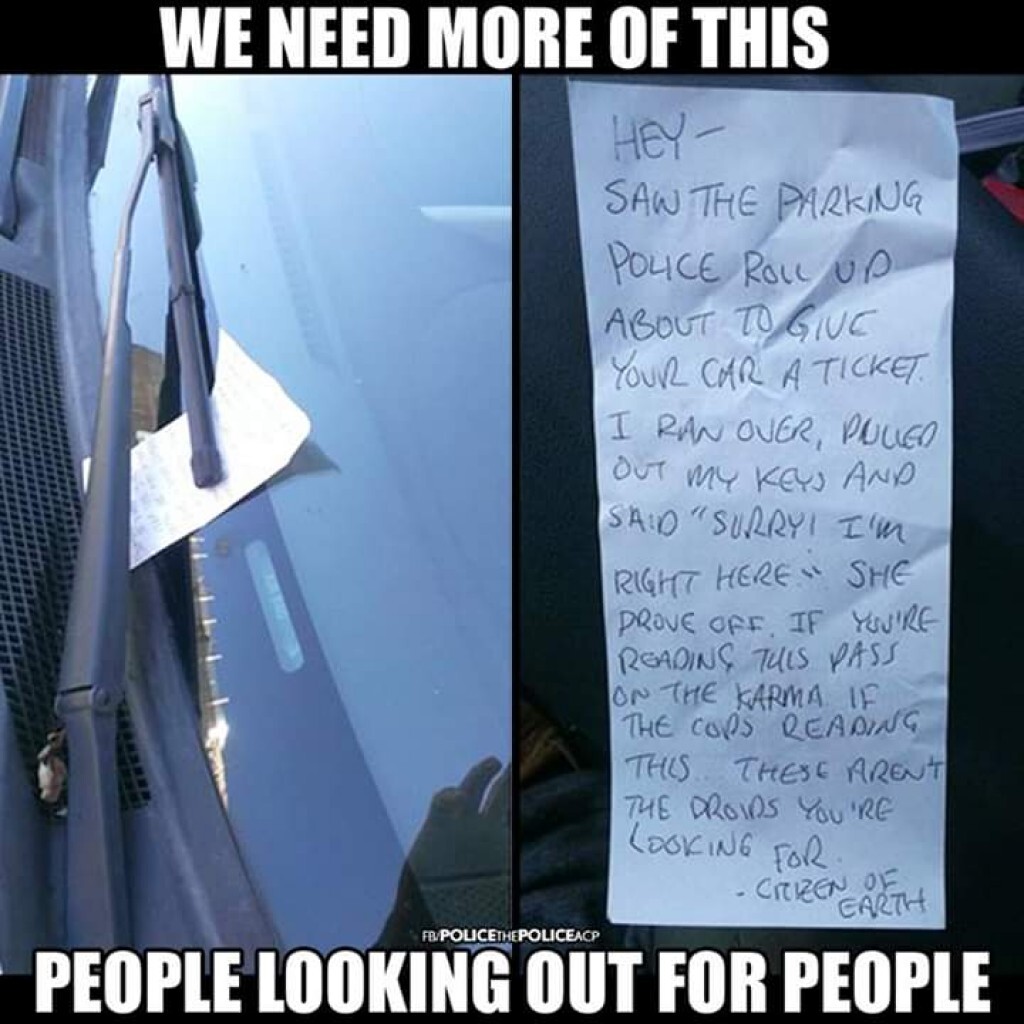 WE NEED MORE OF THIS
HEY-
SAW THE PARKING
POLICE ROLL UP
ABOUT TO GIVE
YOUR CAR A TICKET.
I RAN OVER, PULLED
OUT MY KEYS AND
SAID "SURRY! I'M
RIGHT HERE" SHE
DROVE OFF. IF YOU'RE
READING THIS PASS
ON THE KARMA. IF
THE COPS READING
THIS... THESE AREN'T
THE DROIDS YOU'RE
LOOKING FOR.
- CITIZEN OF
EARTH
FB/POLICETHEPOLICEACP
PEOPLE LOOKING OUT FOR PEOPLE